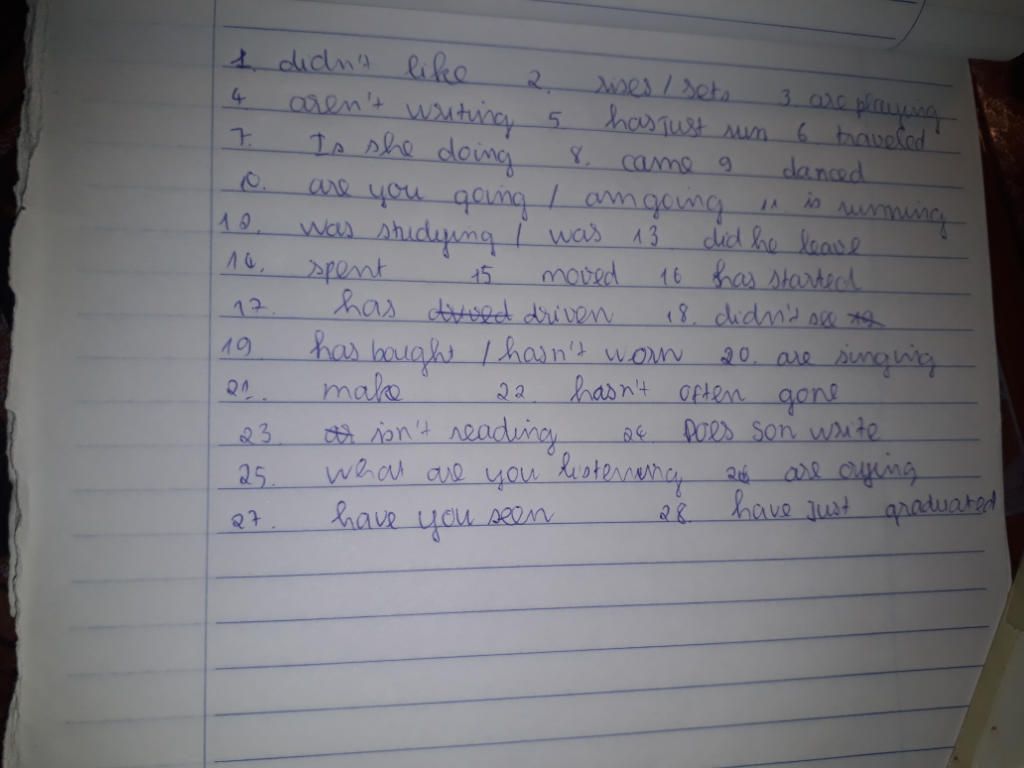 1. didn't like 2. rises / sets 3 are playing
4 aren't writing 5 has just run 6 traveled
7. Is she doing 8. came 9 danced
10. are you going / am going 11. is running
12. was studying / was 13 did he leave
14. spent 15 moved 16 has started
17. has drived driven 18. didn't see
19 has bought / hasn't worn 20. are singing
21. make 22. hasn't often gone
23. isn't reading 24. Does son write
25. what are you listerning 26 are crying
27. have you seen 28. have just graduated